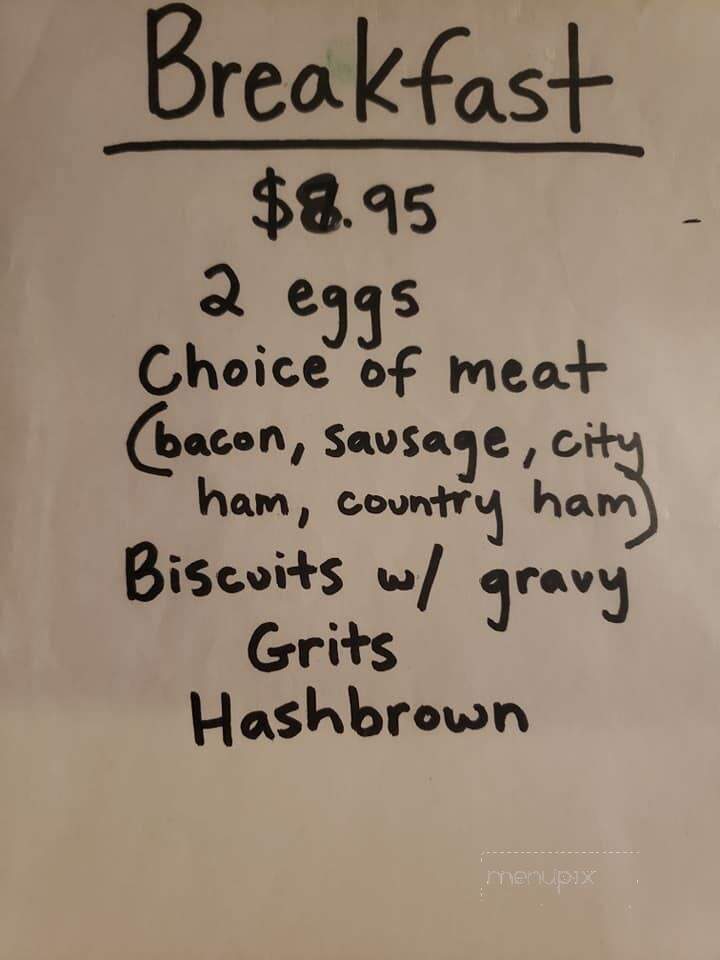 Breakfast
$8.95
2 eggs
Choice of meat
(bacon, sausage, city
ham, country ham)
Biscuits w/ gravy
Grits
Hashbrown
menupix